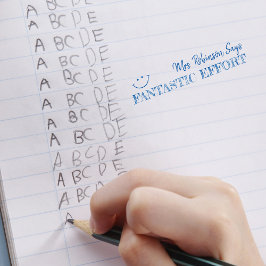 A B C D E
A B C D E
A B C D E
A B C D E
A B C D E
A B C D E
A B C D E
A B C D E
A B C D E
A B C D E
A B C
A
Mrs Robinson Says
FANTASTIC EFFORT